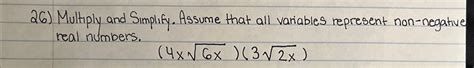 26) Multiply and Simplify. Assume that all variables represent non-negative
real numbers.
(4x√6x)(3√2x)